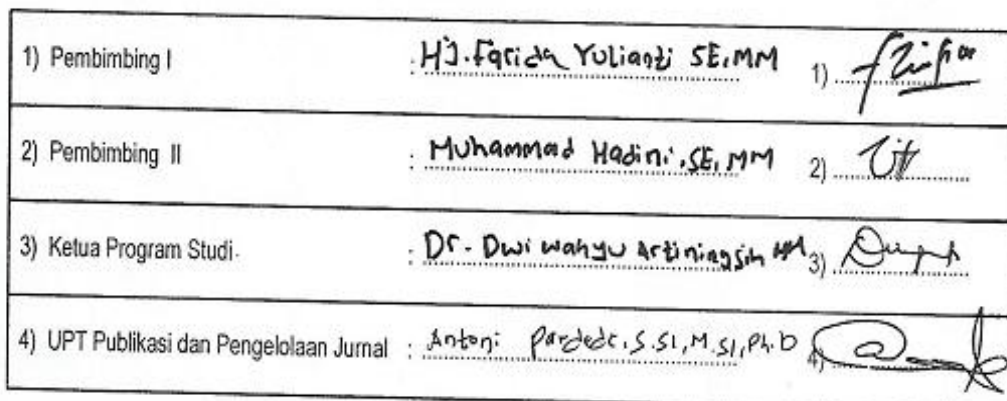 1) Pembimbing I : Hj. Farida Yulianti SE, MM 1)
2) Pembimbing II : Muhammad Hadini, SE, MM 2)
3) Ketua Program Studi : Dr. Dwi Wahyu Artiningsih MM 3)
4) UPT Publikasi dan Pengelolaan Jurnal : Antoni Pardede, S.SI, M.SI, Ph.D 4)